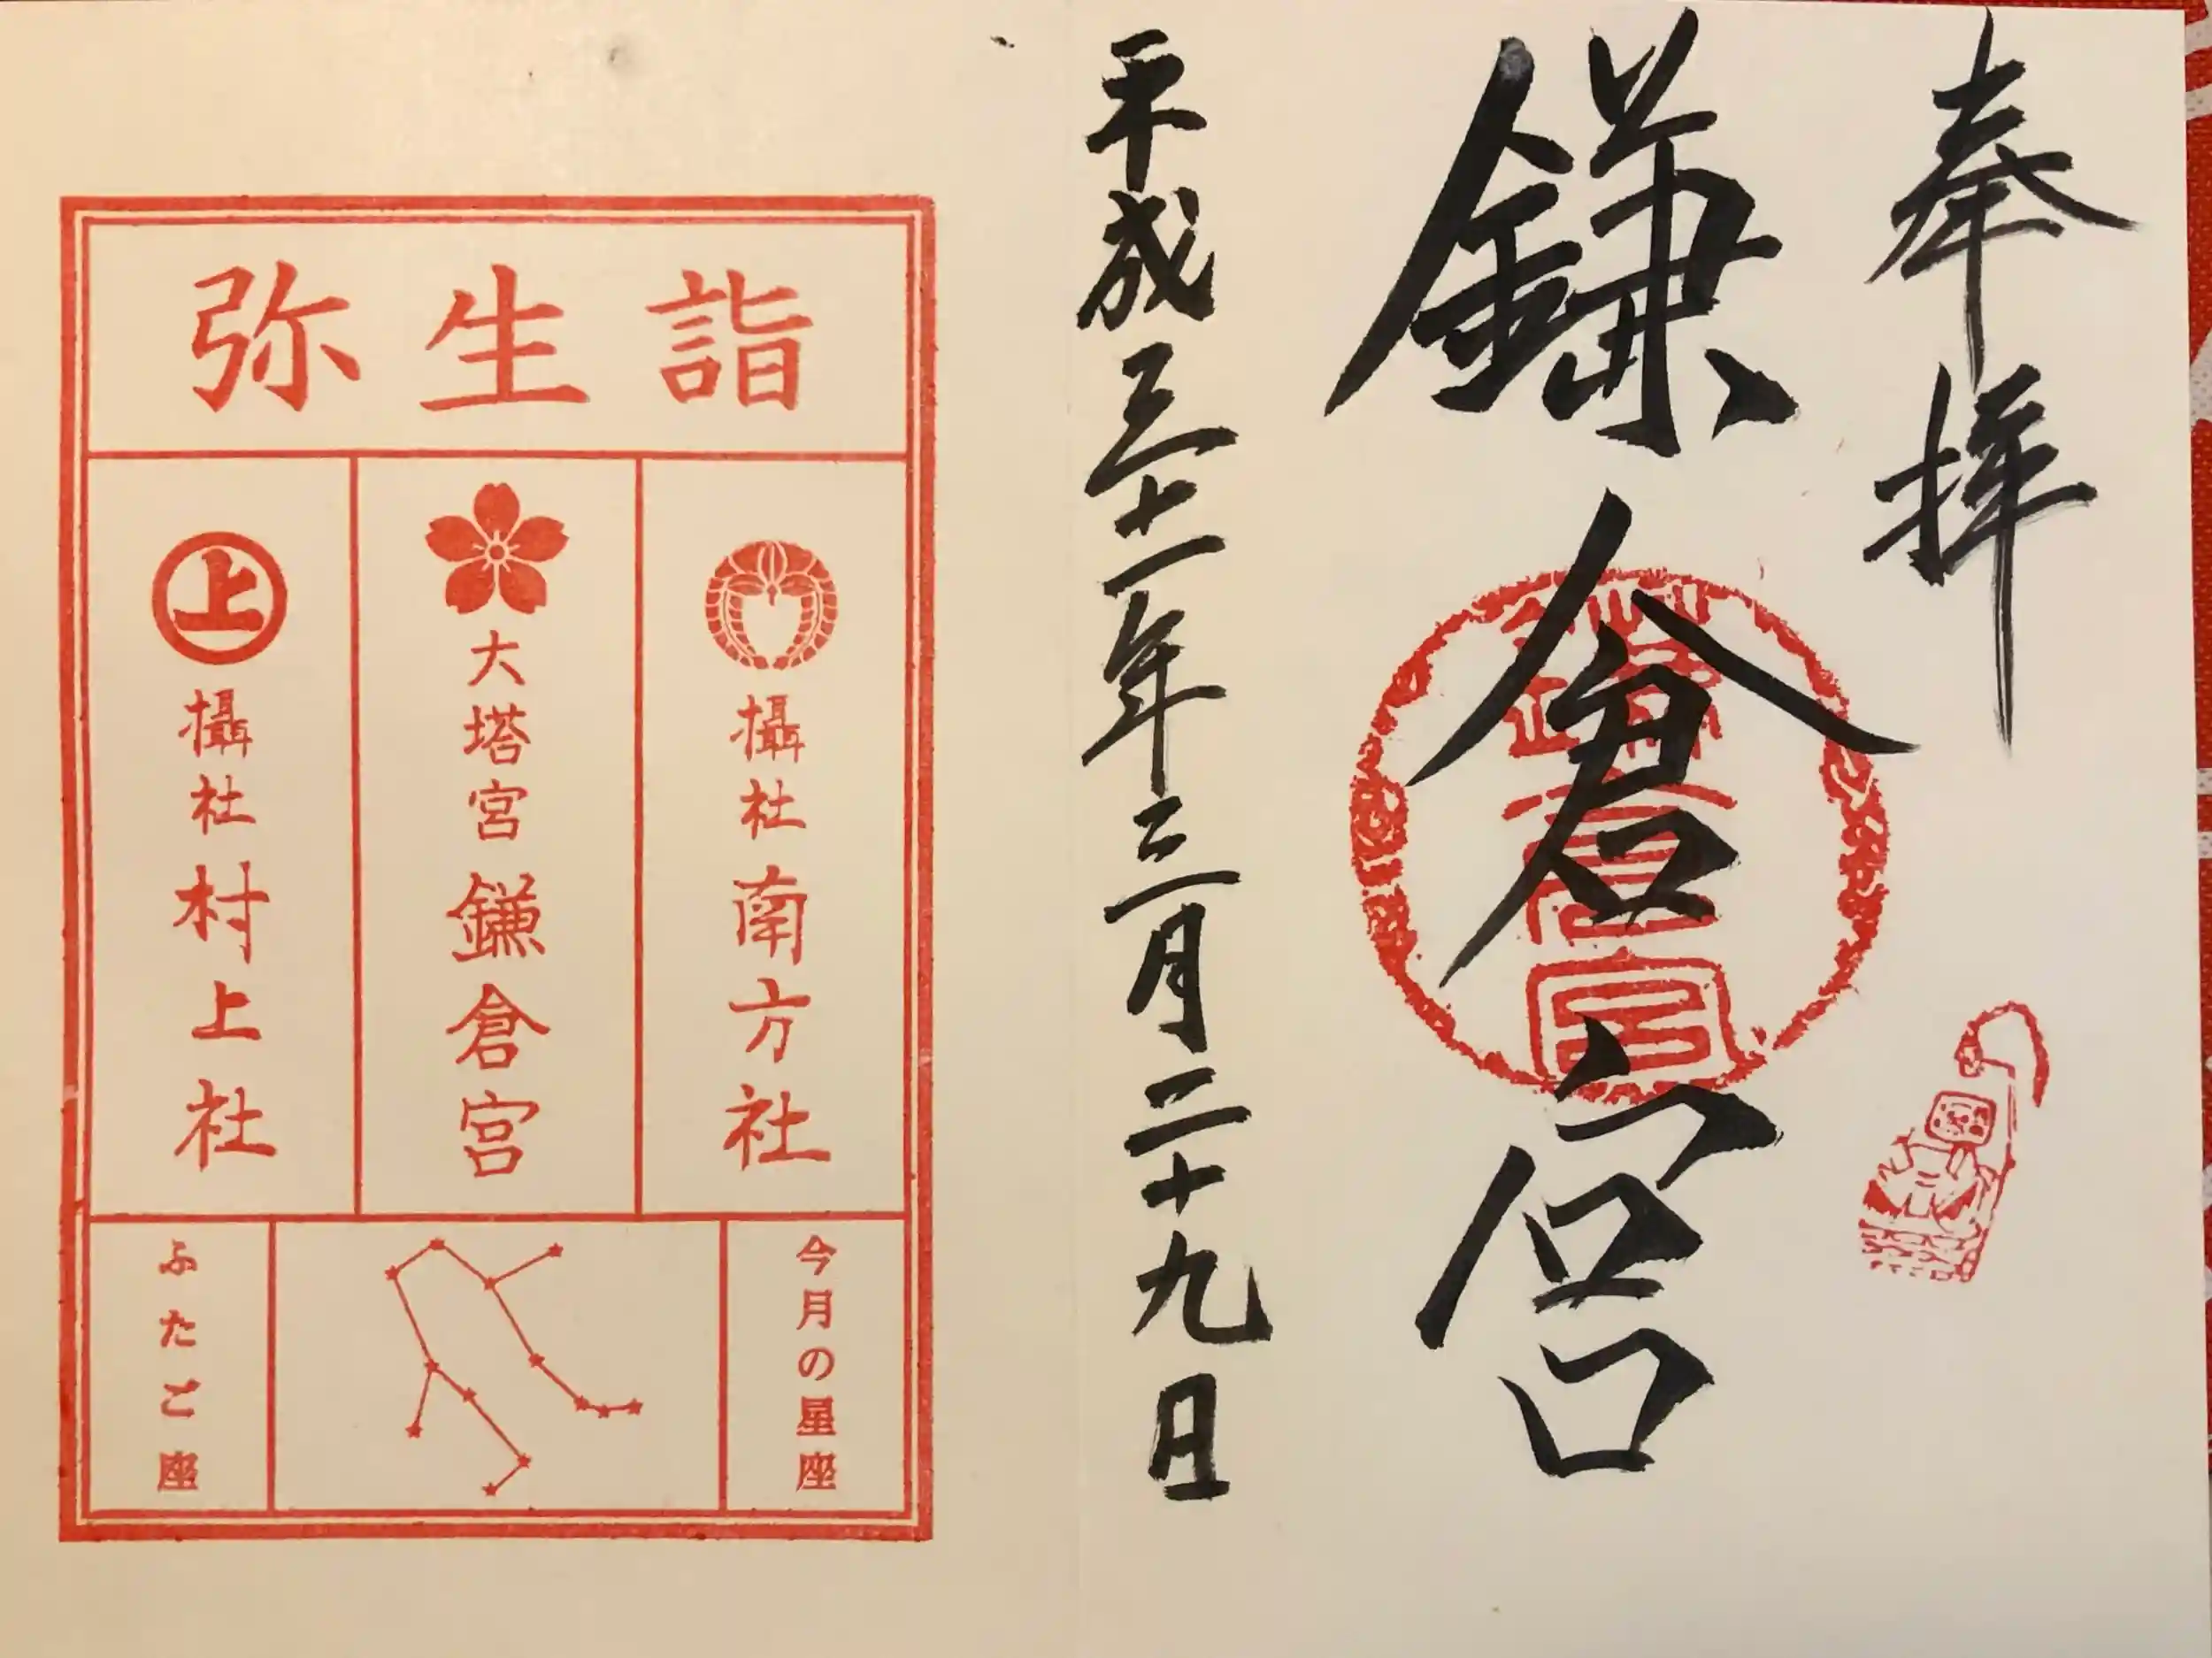 奉拝
鎌倉宮
鎌倉宮
平成三十一年三月二十九日
弥生詣
攝社 南方社
大塔宮 鎌倉宮
上
攝社 村上社
今月の星座
ふたご座